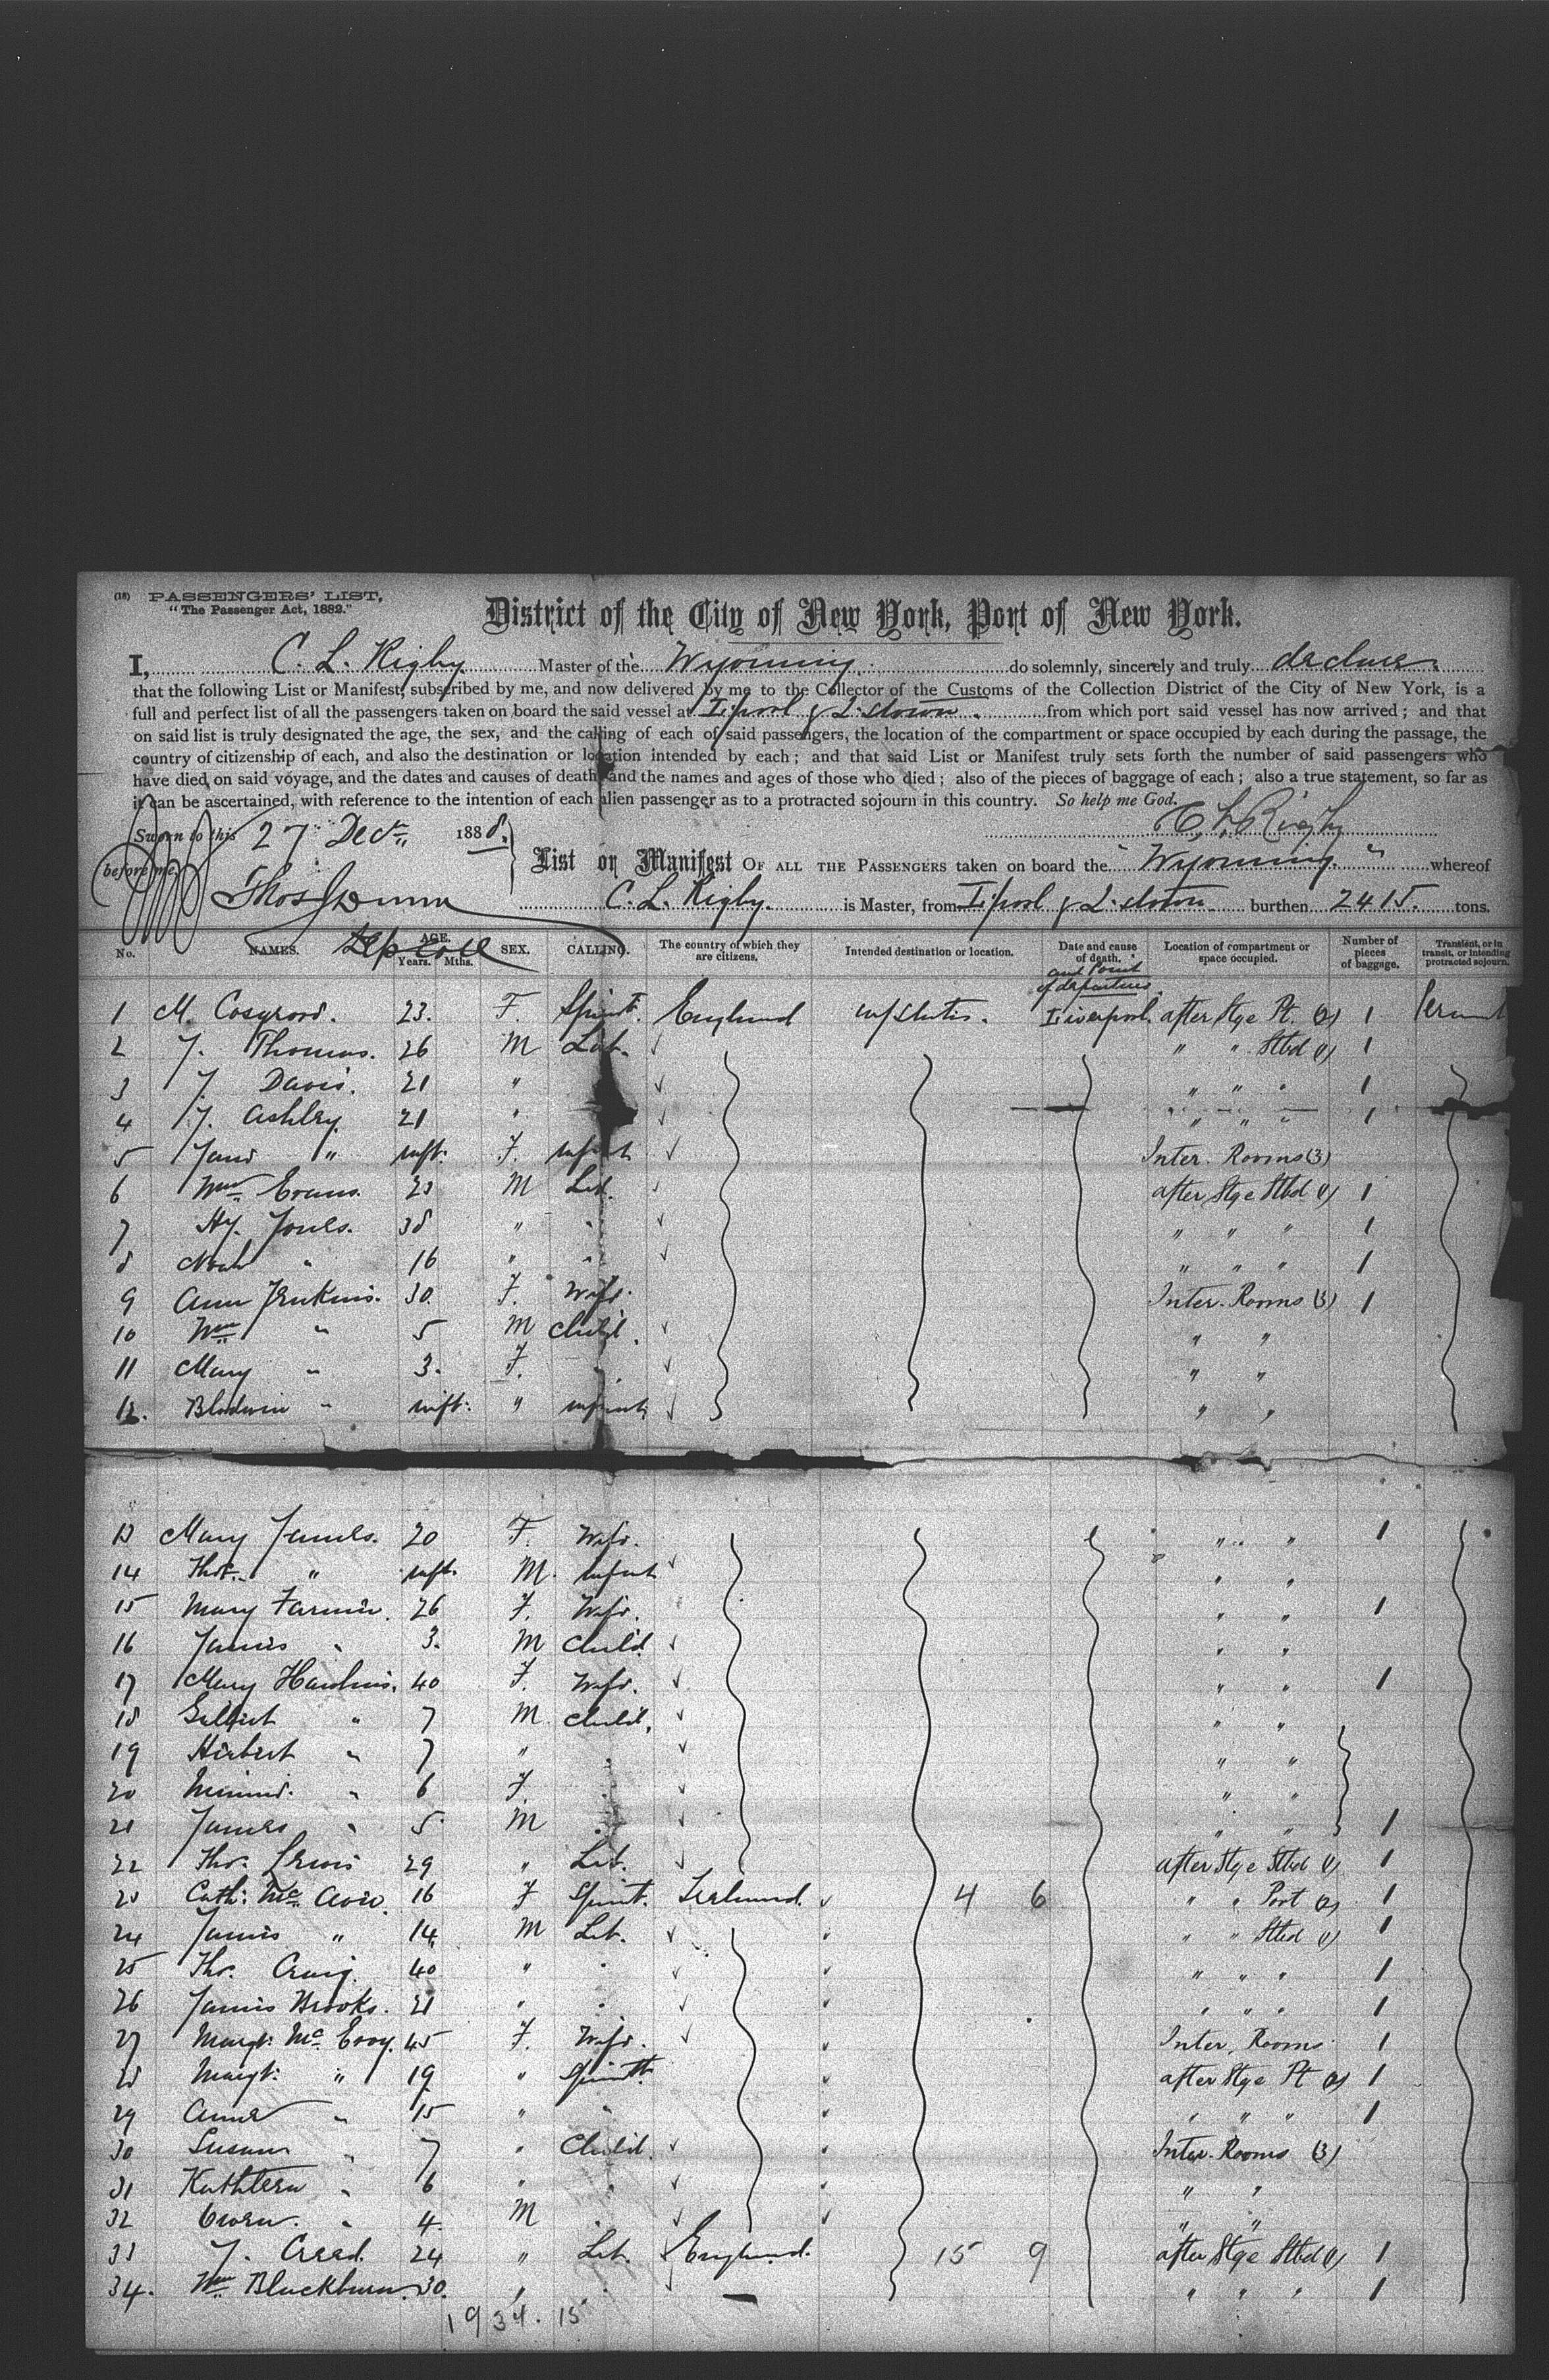 (18) PASSENGERS' LIST,
"The Passenger Act, 1882."
District of the City of New York, Port of New York.
I, C. L. Rigby Master of the Wyoming do solemnly, sincerely and truly declare
that the following List or Manifest, subscribed by me, and now delivered by me to the Collector of the Customs of the Collection District of the City of New York, is a
full and perfect list of all the passengers taken on board the said vessel at L'pool & Q'stown from which port said vessel has now arrived; and that
on said list is truly designated the age, the sex, and the calling of each of said passengers, the location of the compartment or space occupied by each during the passage, the
country of citizenship of each, and also the destination or location intended by each; and that said List or Manifest truly sets forth the number of said passengers who
have died on said voyage, and the dates and causes of death and the names and ages of those who died; also of the pieces of baggage of each; also a true statement, so far as
it can be ascertained, with reference to the intention of each alien passenger as to a protracted sojourn in this country. So help me God.
Sworn to this 27 Decr 1888 C. L. Rigby
before me,
List or Manifest OF ALL THE PASSENGERS taken on board the "Wyoming" whereof
Thos Dunn C. L. Rigby. is Master, from L'pool & Q'stown burthen 2415. tons.
Dep Coll
No. NAMES. AGE. Years. Mths. SEX. CALLING. The country of which they are citizens. Intended destination or location. Date and cause of death. and Point of departure. Location of compartment or space occupied. Number of pieces of baggage. Transient, or in transit, or intending protracted sojourn.
1 M. Cosgrove. 23. F. Spinst. England U/States. Liverpool. after Stge Pt. (2) 1
2 J. Thomas. 26 M Lab. " " Stbd (1) 1
3 J. Davis. 21 " " " " 1
4 J. Ashley. 21 " " " " 1
5 Jane " inft. F. infant Inter. Rooms (3)
6 Wm Evans. 23 M Lab. after Stge Stbd (1) 1
7 Hy. Jones. 38 " " " " " 1
8 Noah " 16 " " " " " 1
9 Ann Jenkins. 30. F. Wife. Inter. Rooms (3) 1
10 Wm " 5 M Child. " "
11 Mary " 3. F. " " "
12. Blodwin " inft. " infant " "
13 Mary James. 20 F. Wife. " " 1
14 Thos. " inft. M. infant " "
15 Mary Farmer. 26 F. Wife. " " 1
16 James " 3. M Child. " "
17 Mary Hawkins. 40 F. Wife. " " 1
18 Gilbert " 7 M. Child. " "
19 Herbert " 7 " " "
20 Minnie. " 6 F. " "
21 James " 5 M " " " 1
22 Thos. Lewis 29 " Lab. after Stge Stbd (1) 1
23 Cath: Mc 16 F Spinst. Ireland. 4 6 " " Port (2) 1
24 James " 14 M Lab. " " Stbd (1) 1
25 Thos. Craig. 40 " " " " " 1
26 James Brooks. 21 " " " " " 1
27 Margt. McEvoy. 45 F. Wife. Inter. Rooms 1
28 Margt. " 19 " Spinst. after Stge Pt (2) 1
29 Anne " 15 " " " " " 1
30 Susan " 7 " Child. Inter. Rooms (3)
31 Kathleen " 6 " " " "
32 Owen. " 4. M " " "
33 J. Creed. 24 " Lab. England. 15 9 after Stge Stbd (1) 1
34. Wm Blackburn. 30. " " " " " 1
1934. 15